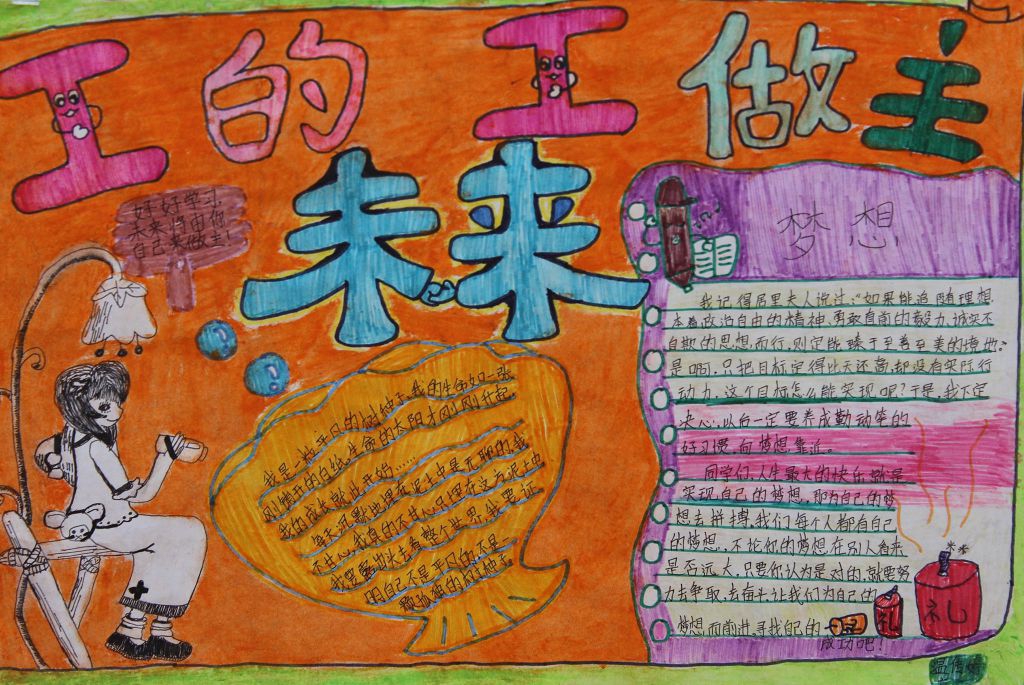 工的工做主
未来
好好学习
未来将由你
自己来做主!
我是一粒平凡的树种子,我的生命如一张
刚撕开的白纸,生命的太阳才刚刚升起,
我的成长就此开的……
每天沉默地埋在泥土中是无聊的,我
不甘心,我真的不甘心只埋在这方泥土中
我要露出头去看整个世界,我要证
明自己不是平凡的,不是
颗孤独的树种子
梦想
我记得居里夫人说过:“如果能追随理想
本着政治自由的精神,勇敢直前的毅力,诚实不
自欺的思想而行,则定能臻于至善至美的境地。”
是啊,只把目标定得比天还高,却没有实际行
动力,这个目标怎么能实现呢?于是,我下定
决心,以后一定要养成勤动笔的
好习惯,向梦想靠近。
同学们,人生最大的快乐就是
实现自己的梦想,那为自己的梦
想去拼搏,我们每个人都有自己
的梦想,不论你的梦想在别人看来
是否远大,只要你认为是对的,就要努
力去争取,去奋斗让我们为自己的
梦想而前进,寻找自己的
成功吧!
礼
礼